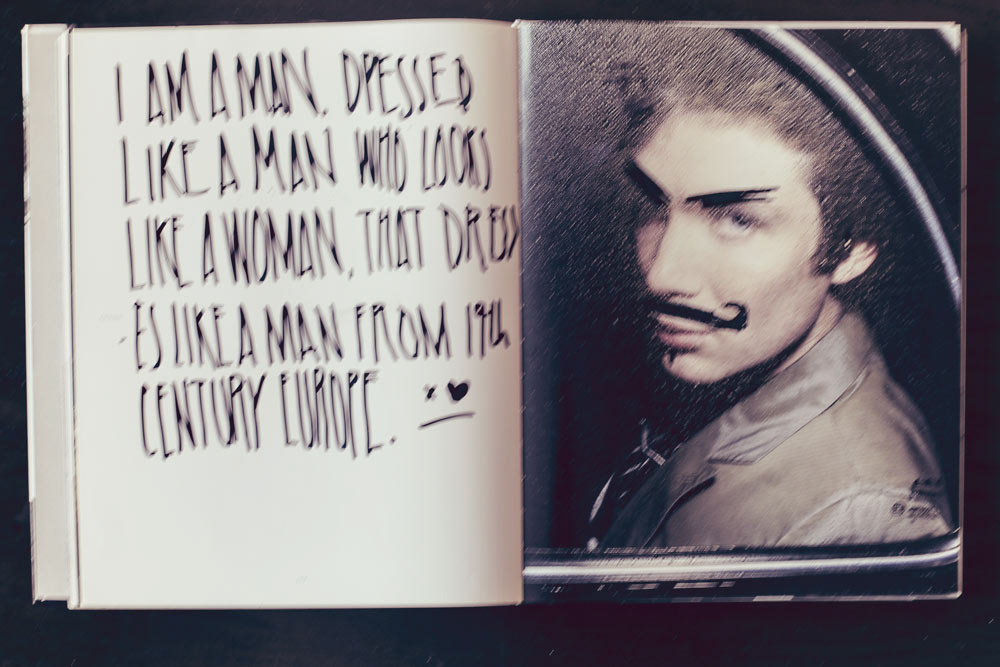 I AM A MAN. DRESSED
LIKE A MAN WHO LOOKS
LIKE A WOMAN, THAT DRESS
-ES LIKE A MAN FROM 19th
CENTURY EUROPE.